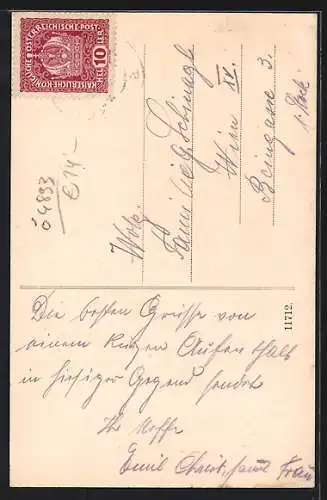 KAISERLICHE KÖNIGLICHE ÖSTERREICHISCHE POST
10 HELLER
ö 4893
€ 14.-
Wolg.
Familie G. Schinagl
Wien XV.
Beingasse 3.
I. Stock
Die besten Grüsse von
einem kurzen Aufenthalt
in hiesiger Gegend sendet
Ihr Neffe
Emil samt Frau
11712.